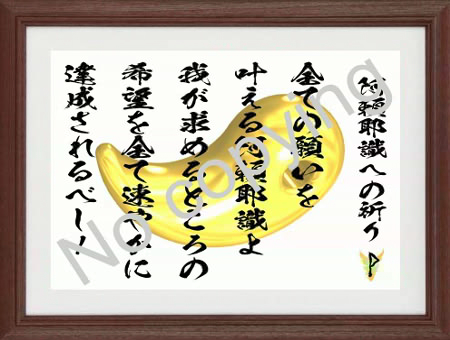 阿頼耶識への祈り
全ての願いを
叶える阿頼耶識よ
我が求めるところの
希望を全て速やかに
達成されるべし!
No copying